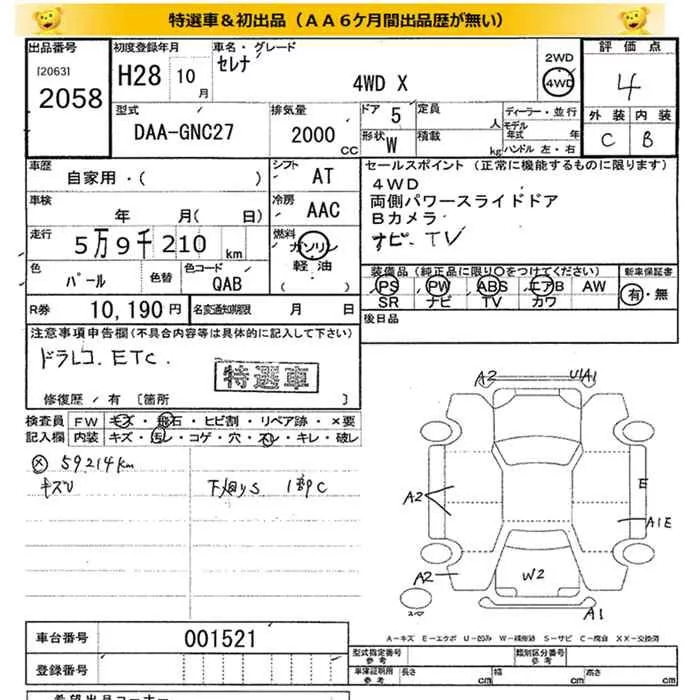 特選車＆初出品（ＡＡ６ケ月間出品歴が無い）
出品番号
[2063]
2058
初度登録年月
H28 10月
車名・グレード
セレナ
4WD X
2WD
4WD
評価点
4
外装 内装
C B
型式
DAA-GNC27
排気量
2000 CC
ドア 5
形状 W
定員 人
積載 kg
ディーラー・並行
モデル年式 年
ハンドル 左・右
車歴
自家用・( )
車検
年 月( 日)
走行
5万9千210 km
色
パール
色替
色コード
QAB
シフト
AT
冷房
AAC
燃料
ガソリン
軽油
セールスポイント (正常に機能するものに限ります)
4WD
両側パワースライドドア
Bカメラ
ナビ. TV
装備品(純正品に限り○をつけてください)
PS PW ABS エアB AW
SR ナビ TV カワ
新車保証書
有・無
R券 10,190円
名変通知期限 月 日
後日品
注意事項申告欄(不具合内容等は具体的に記入して下さい)
ドラレコ. ETC.
特選車
修復歴／有 [箇所 ]
検査員
記入欄
FW キズ・飛石・ヒビ割・リペア跡・×要
内装 キズ・汚レ・コゲ・穴・スレ・キレ・破レ
59214km
キズU
下廻りS 1部C
A2 U1A1
A2
E
A1E
A2
W2
A1
A-キズ E-エクボ U-凹み W-補修跡 S-サビ C-腐食 XX-交換済
車台番号 001521
登録番号
型式指定番号 参考
類別区分番号 参考
車庫証明用 参考 長さ cm 幅 cm 高さ cm
希望出品コーナー